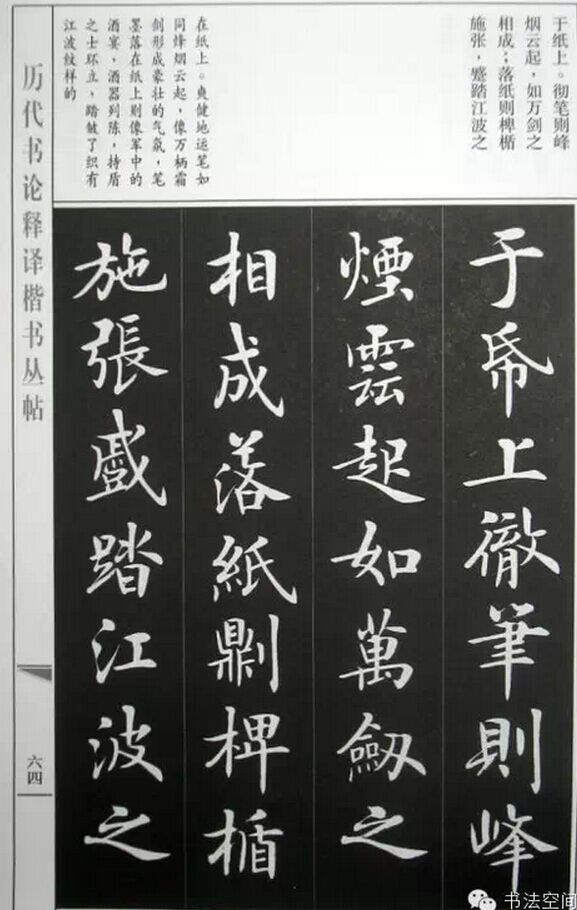 于纸上。彻笔则峰
烟云起,如万剑之
相成;落纸则椑楯
施张,蹙踏江波之
在纸上。爽健地运笔如
同烽烟云起,像万柄霜
剑形成豪壮的气氛,笔
墨落在纸上则像军中的
酒宴,酒器列陈,持盾
之士环立,踏皱了织有
江波纹样的
于帋上徹筆則峰
煙雲起如萬劔之
相成落紙則椑楯
施張蹙踏江波之
历代书论释译楷书丛帖
六四
书法空间